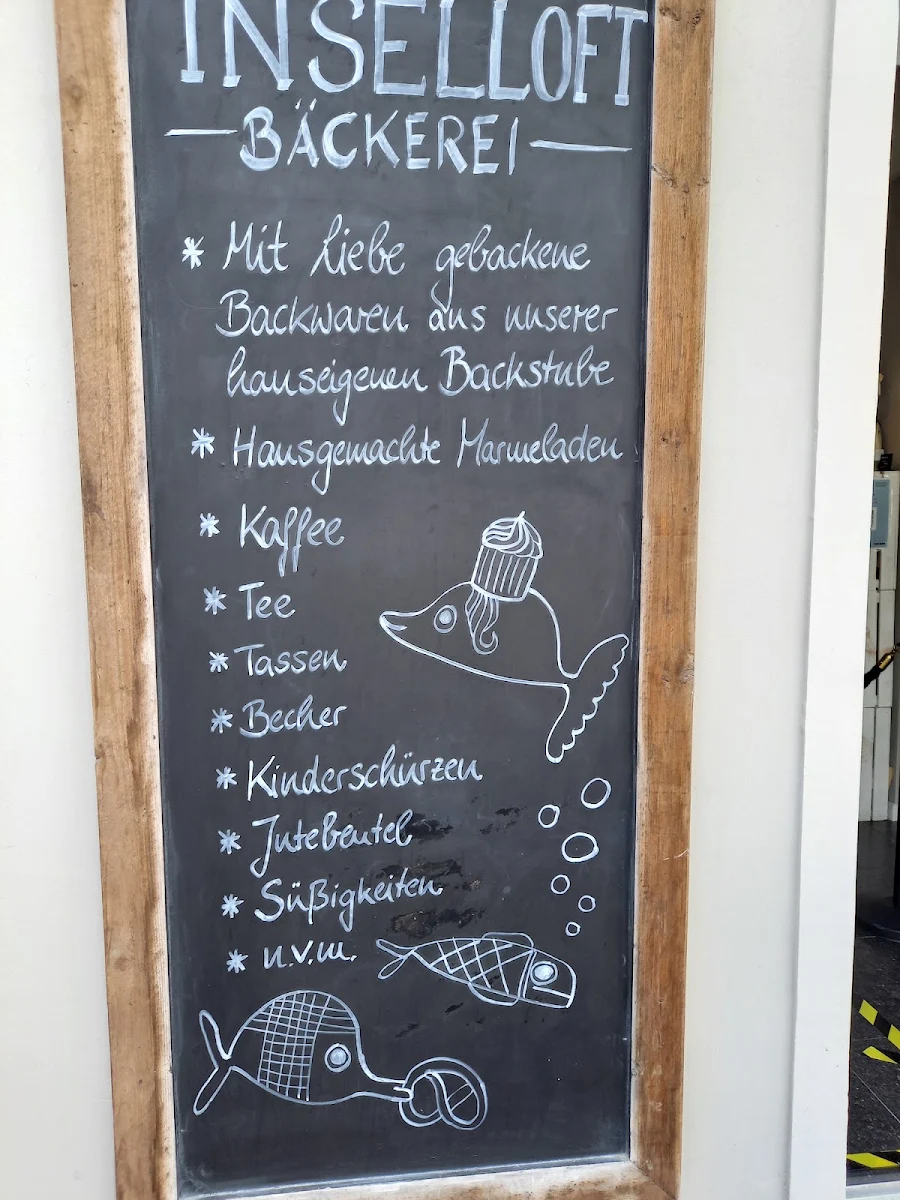 INSELLOFT
— BÄCKEREI —
* Mit liebe gebackene
Backwaren aus unserer
hauseigenen Backstube
* Hausgemachte Marmeladen
* Kaffee
* Tee
* Tassen
* Becher
* Kinderschürzen
* Jutebeutel
* Süßigkeiten
* u.v.m.